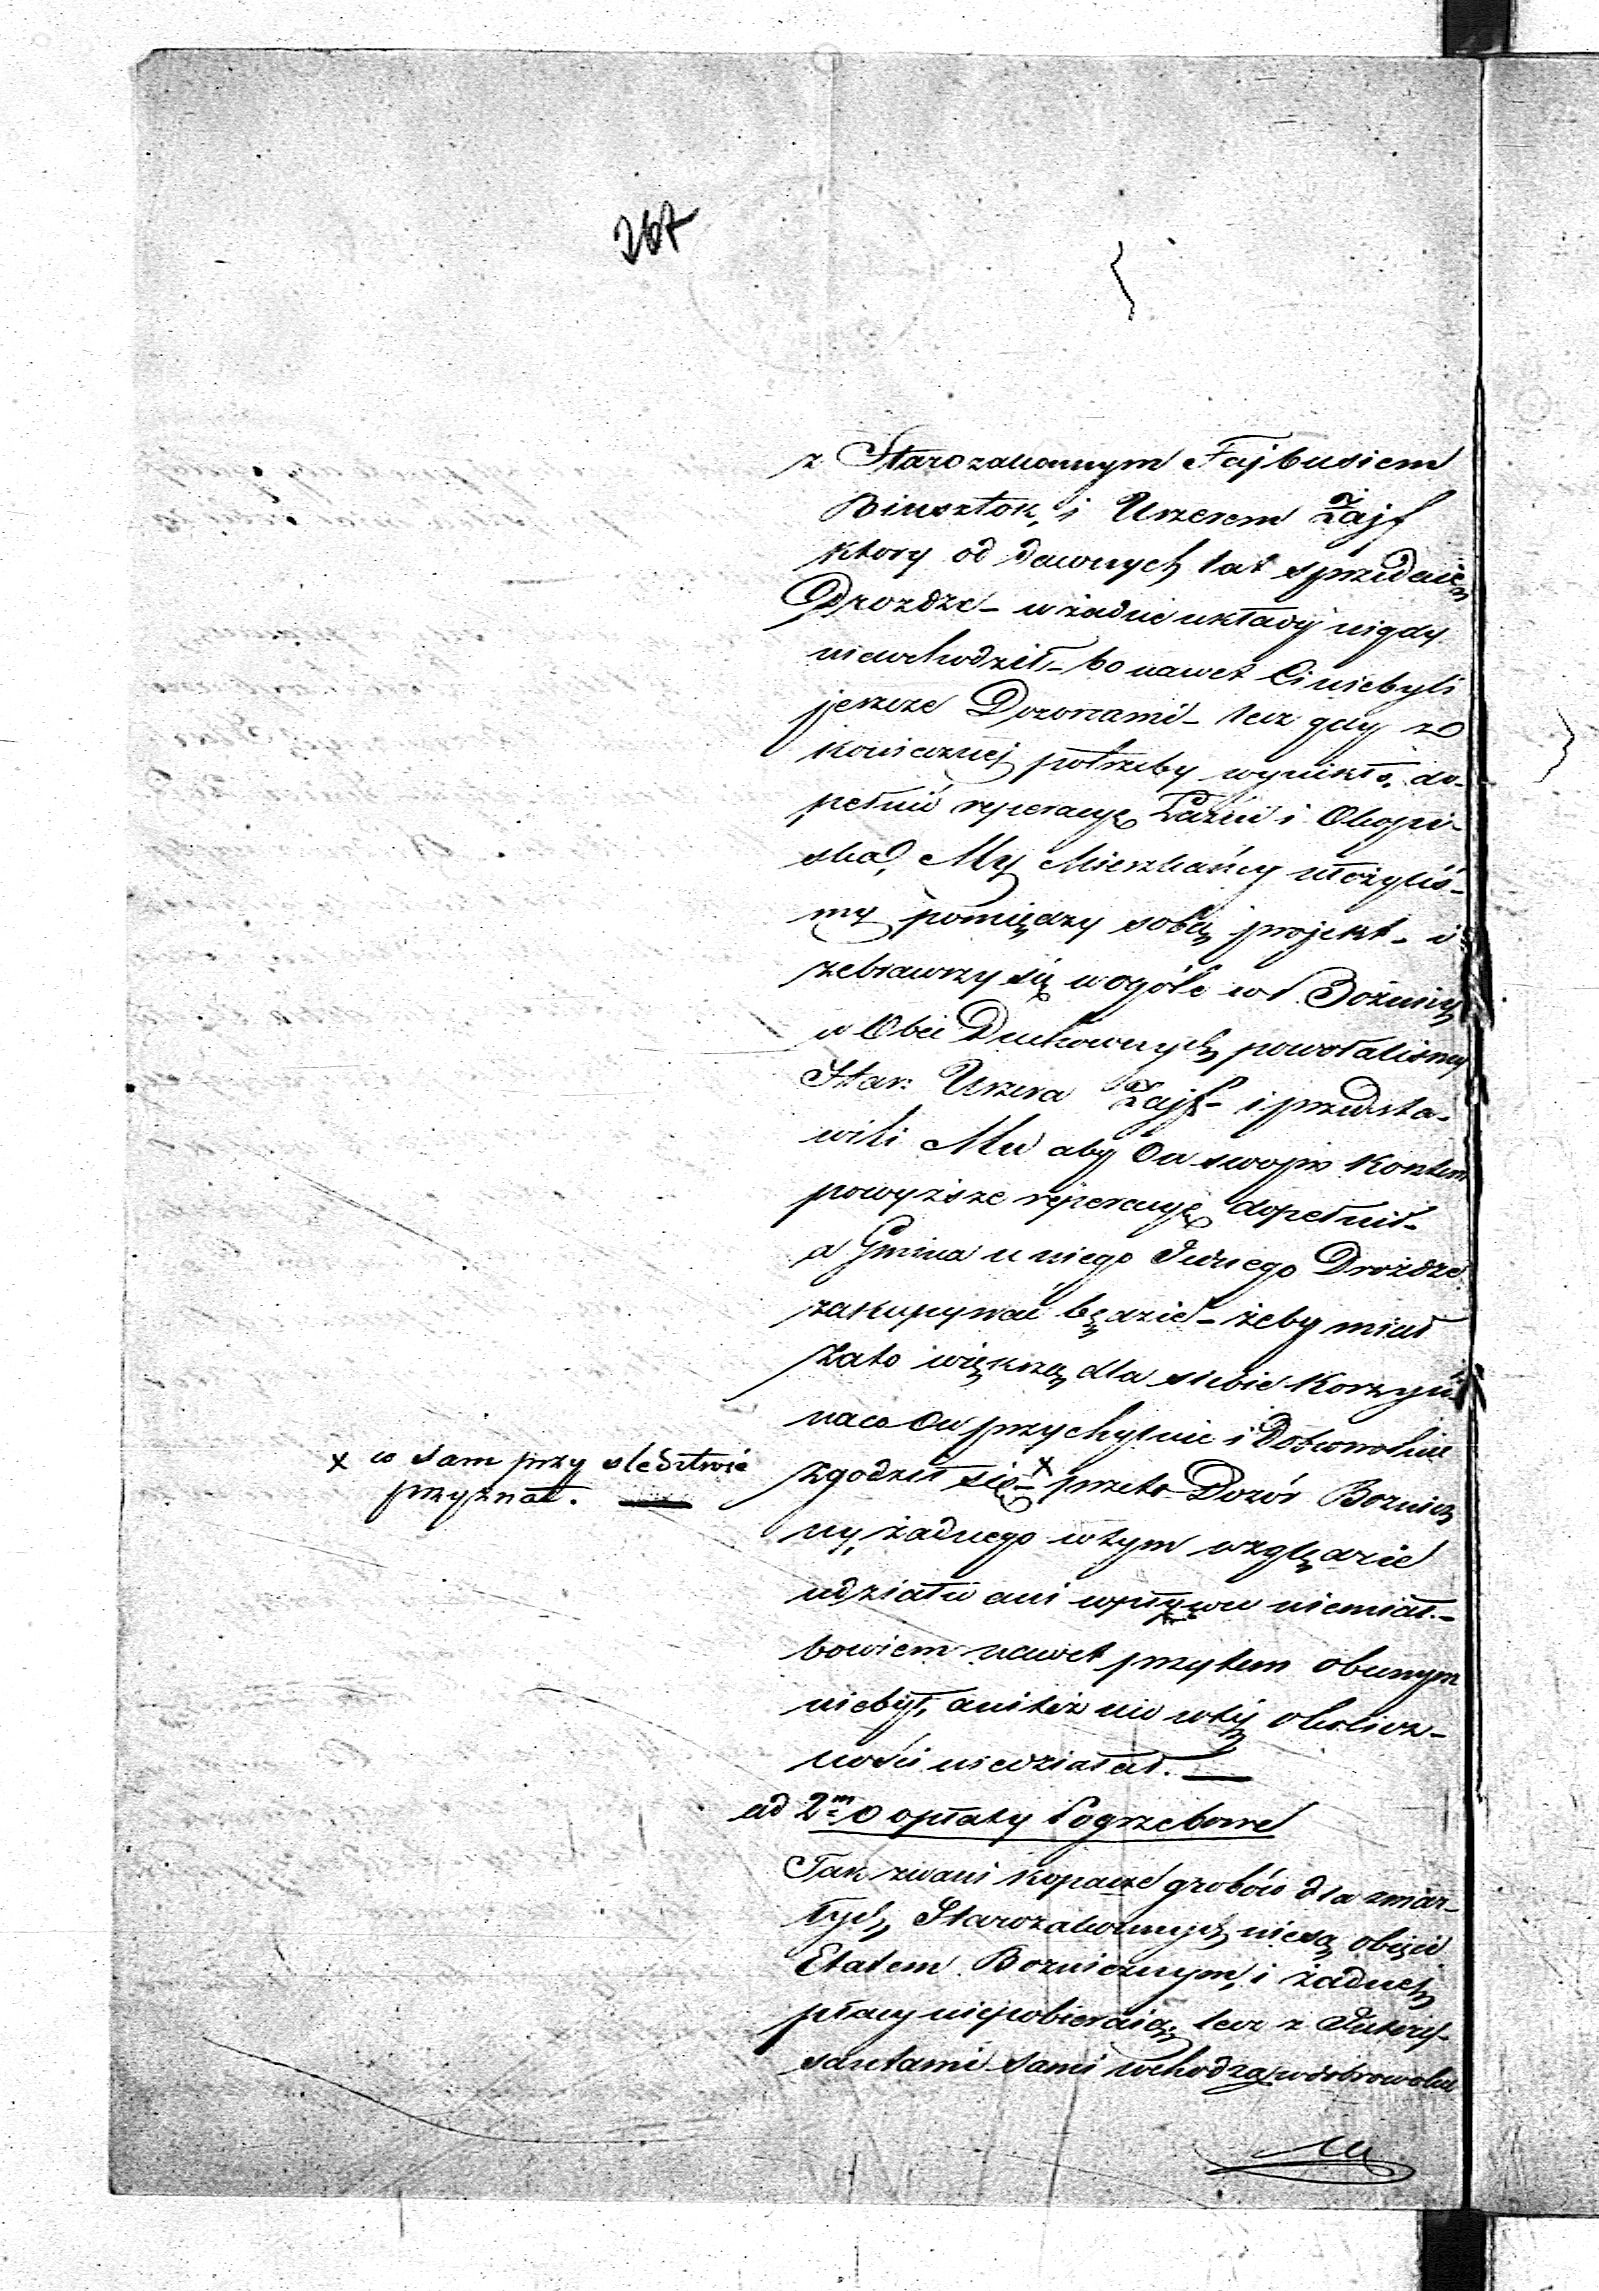 267
z Starozakonnym Fajbusiem
Binsztok, i Uszerem Zajf
ktory od dawnych lat sprzedaie
Drozdze – w żadne układy nigdy
niewchodził – bo nawet Ci niebyli
jeszcze Dozorcami – lecz gdy z
konieczney potrzeby wynikło do-
pełnić reperacyę Łaźni i Okopi-
ska, My Mieszkańcy ułożyliś-
my pomiędzy sobą projekt – i
zebrawszy się wogóle w Bożnicy
w Obec Duchownych powołalismy
Star: Uszera Zajf – i przedsta-
wili Mu aby On swojm kosztem
powyższe reperacye dopełnił –
a Gmina u niego Jednego Drożdże
zakupywać będzie – żeby miał
zato większą dla siebie korzyść
naco On przychylnie i Dobrowolnie
zgodził się – x przeto Dozór Boznicz
ny, żadnego wtym względzie
udziału ani wpływu niemiał. –
bowiem nawet przytem obecnym
niebył, aniteż nic wtéj okolicz-
ności niedziałał. —
x co sam przy sledztwie
przyznał. —
ad 2m O opłaty Pogrzebowe
Tak zwani kopacze grobów dla zmar-
łych Starozakonnych niesą objęci
Etatem Boznicznym, i żadney
płacy niepobieraią, lecz z Interes-
santami sami wchodzą w dobrowolne